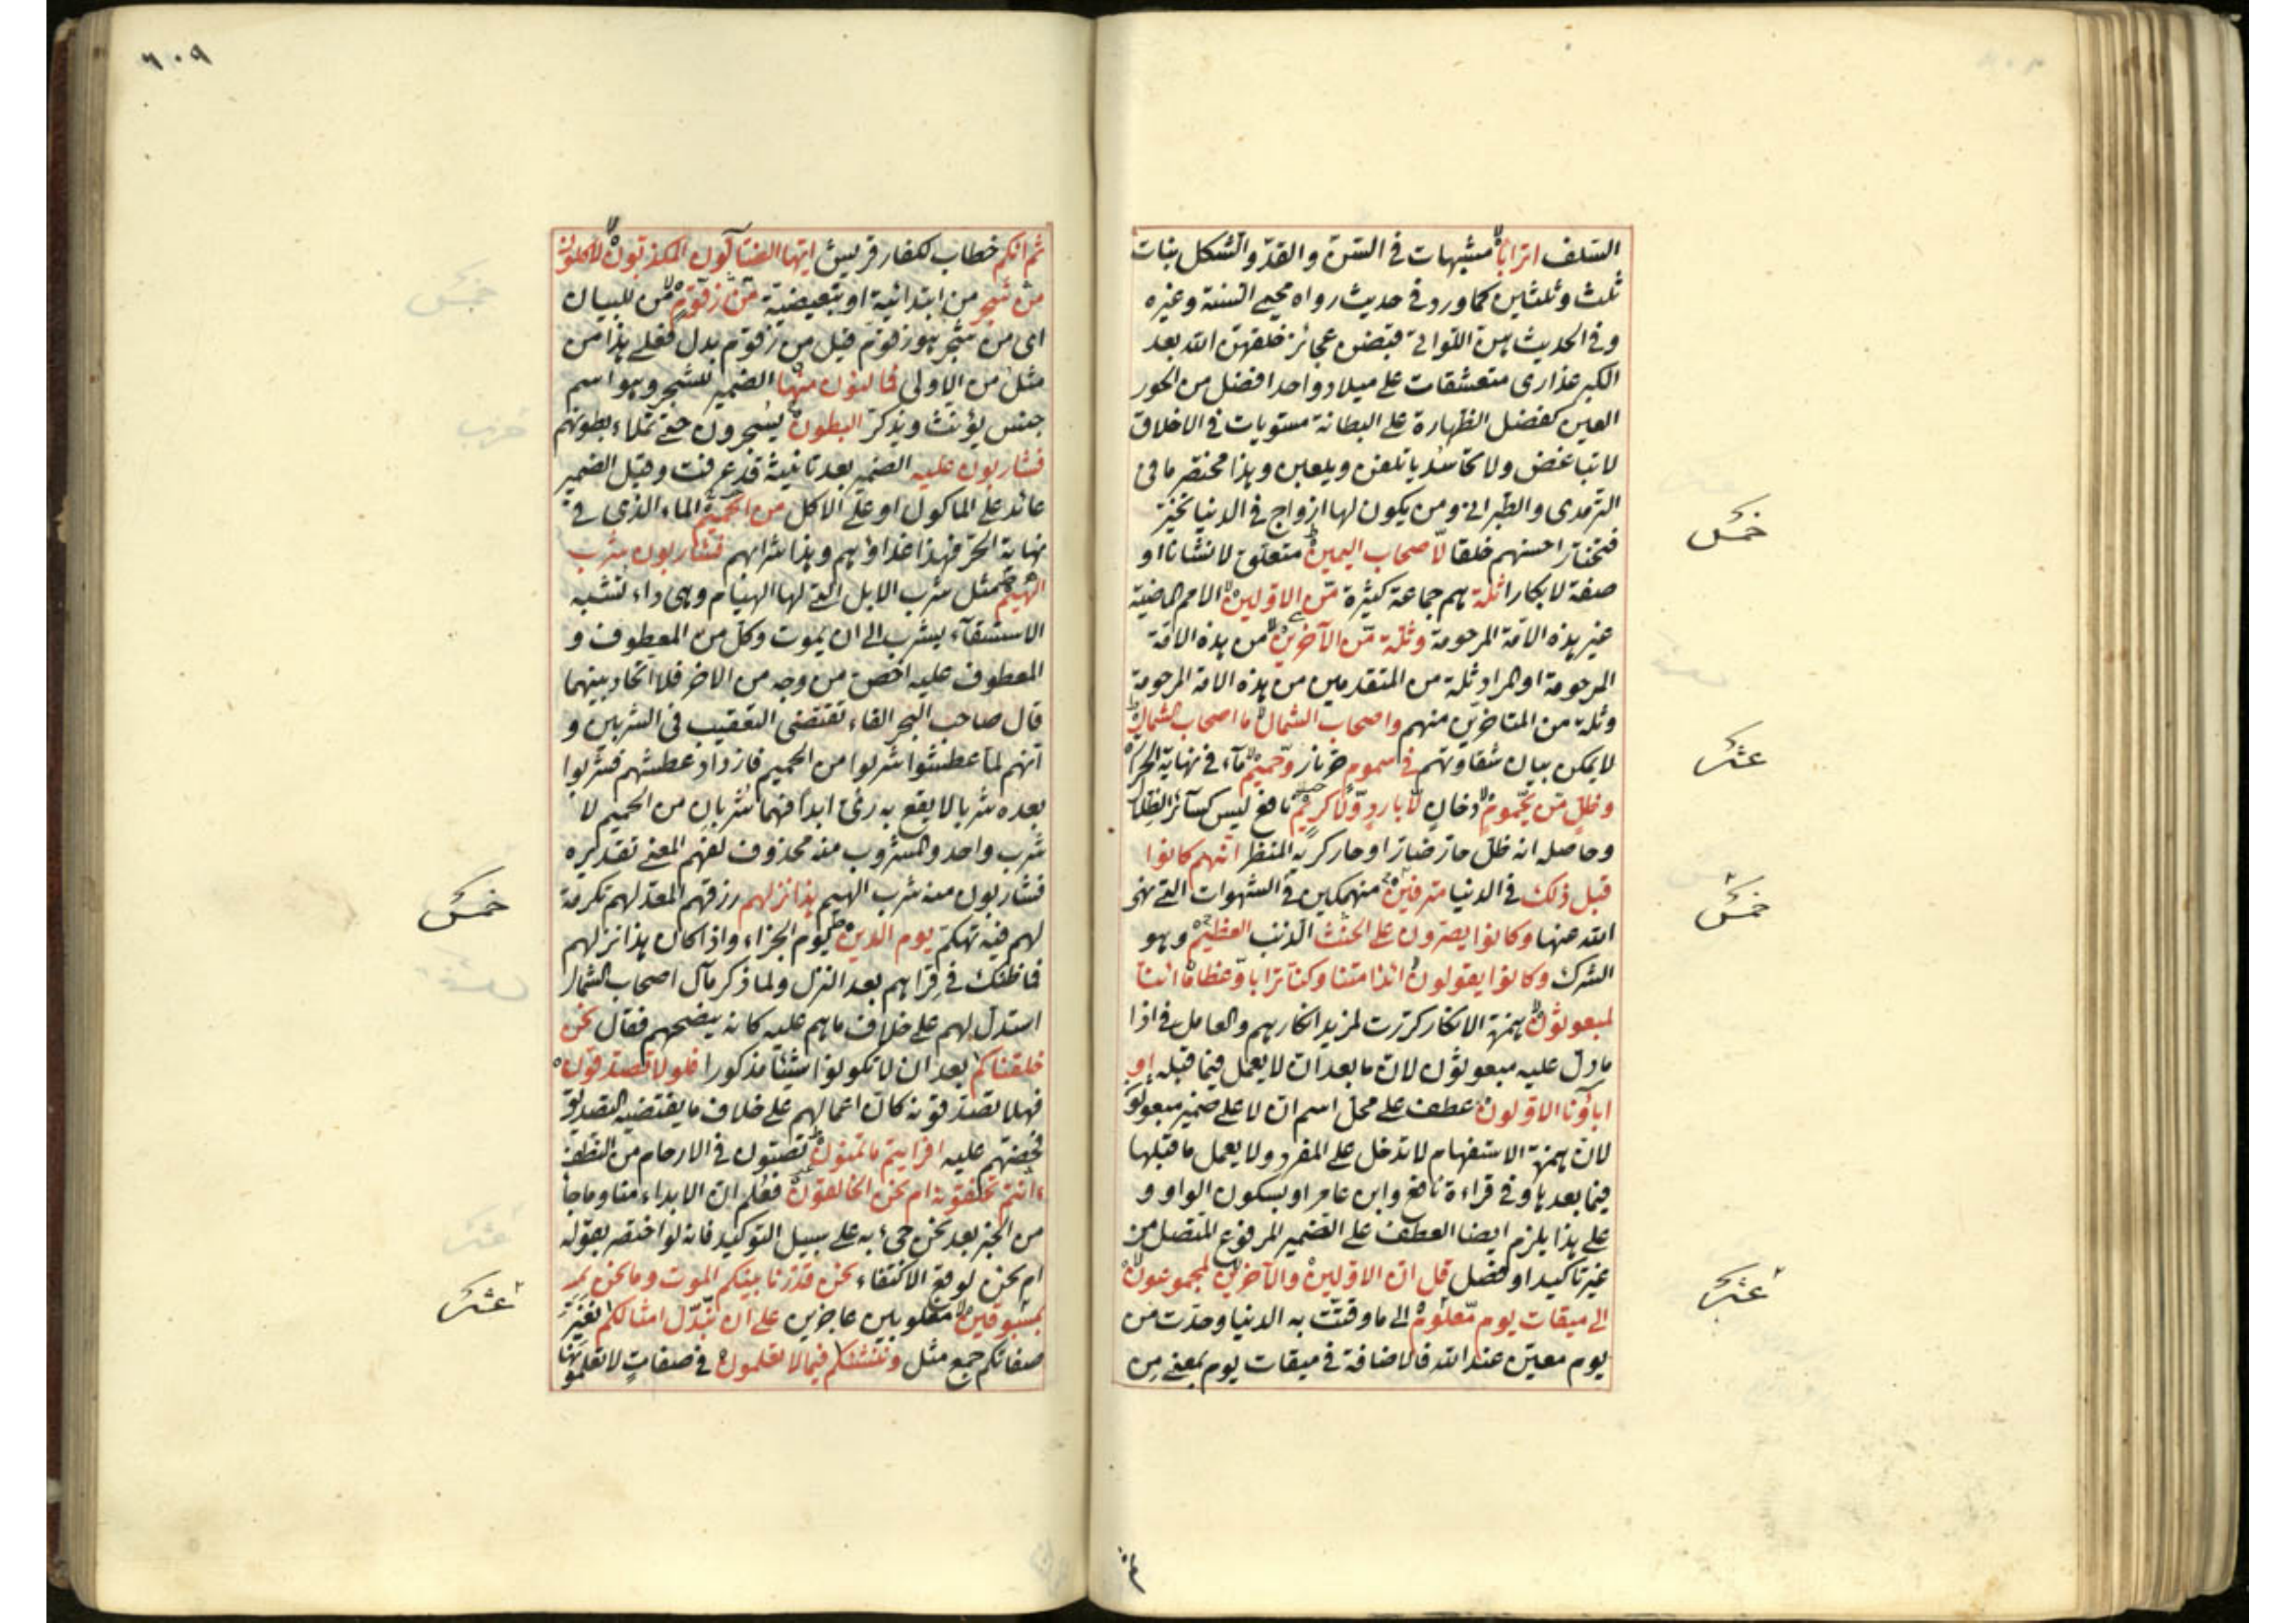 السلف اترابا مشبهات في السن والقد والشكل بنات
ثلث وثلثين كما ورد في حديث رواه محيي السنة وغيره
وفي الحديث هن اللواتي قبضن عجائز خلقهن الله بعد
الكبر عذارى متعشقات على ميلاد واحد افضل من الحور
العين كفضل الظهارة على البطانة مستويات في الاخلاق
لا تباغض ولا تحاسد يأتلفن ويلعبن وهذا مختصر ما في
الترمذى والطبراني ومن يكون لها ازواج في الدنيا تخير
فتختار احسنهم خلقا لاصحاب اليمين متعلق لانشانا او
صفة لابكارا ثلة هم جماعة كثيرة من الاولين الامم الماضية
غير هذه الامة المرحومة وثلة من الآخرين من هذه الامة
المرحومة او المراد ثلة من المتقدمين من هذه الامة المرحومة
وثلة من المتاخرين منهم واصحاب الشمال ما اصحاب الشمال
لا يمكن بيان شقاوتهم في سموم حر نار وحميم ماء في نهاية الحرارة
وظل من يحموم دخان لا بارد ولا كريم نافع ليس كسائر الظلال
وحاصله انه ظل حار ضار او حار كريه المنظر انهم كانوا
قبل ذلك في الدنيا مترفين منهمكين في الشهوات التي نهى
الله عنها وكانوا يصرون على الحنث الذنب العظيم وهو
الشرك وكانوا يقولون ائذا متنا وكنا ترابا وعظاما ائنا
لمبعوثون همزة الانكار كررت لمزيد انكارهم والعامل في اذا
ما دل عليه مبعوثون لان ما بعد ان لا يعمل فيما قبله او
اباؤنا الاولون عطف على محل اسم ان لا على ضمير مبعوثون
لان همزة الاستفهام لا تدخل على المفرد ولا يعمل ما قبلها
فيما بعدها وفي قراءة نافع وابن عامر او بسكون الواو و
على هذا يلزم ايضا العطف على الضمير المرفوع المتصل من
غير تاكيد او فصل قل ان الاولين والآخرين لمجموعون
الى ميقات يوم معلوم الى ما وقتت به الدنيا وحدت من
يوم معين عند الله فالاضافة في ميقات يوم بمعنى من
خمس
عشر
خمس
عشر
٦٠٩
ثم انكم خطاب لكفار قريش ايها الضالون المكذبون لآكلون
من شجر من ابتدائية او تبعيضية من زقوم من للبيان
اى من شجر هو زقوم قيل من زقوم بدل فعلى هذا من
مثل من الاولى فمالئون منها الضمير للشجر وهو اسم
جنس يؤنث ويذكر البطون يسجرون حتى تملاء بطونهم
فشاربون عليه الضمير بعد تانيثه قد عرفت وقيل الضمير
عائد على الماكول او على الاكل من الحميم الماء الذى في
نهاية الحر فهذا غداؤهم وهذا شرابهم فشاربون شرب
الهيم مثل شرب الابل التي لها الهيام وهى داء تشبه
الاستسقاء يشرب الى ان يموت وكل من المعطوف و
المعطوف عليه اخص من وجه من الاخر فلا اتحاد بينهما
قال صاحب البحر الفاء تقتضى التعقيب في الشربين و
انهم لما عطشوا شربوا من الحميم فازداد عطشهم فشربوا
بعده شربا لا يقع به رى ابدا فهما شربان من الحميم لا
شرب واحد والمشروب منه محذوف لفهم المعنى تقديره
فشاربون منه شرب الهيم هذا نزلهم رزقهم المعد لهم تكرمة
لهم فيه تهكم يوم الدين يوم الجزاء واذا كان هذا نزلهم
فما ظنك في قراهم بعد النزل ولما ذكر مآل اصحاب الشمال
استدل لهم على خلاف ما هم عليه كانه ينصحهم فقال نحن
خلقناكم بعد ان لا تكونوا شيئا مذكورا فلولا تصدقون
فهلا تصدقونه كان اعمالهم على خلاف ما يقتضيه التصديق
فحضهم عليه افرايتم ما تمنون تصبون في الارحام من النطف
ءانتم تخلقونه ام نحن الخالقون فعلم ان الابداء منا وما جا
من الخبر بعد نحن جىء به على سبيل التوكيد فانه لو اختصر بقوله
ام نحن لوقع الاكتفاء نحن قدرنا بينكم الموت وما نحن
بمسبوقين مغلوبين عاجزين على ان نبدل امثالكم نغير
صفاتكم جمع مثل وننشئكم فيما لا تعلمون في صفات لا تعلمونها
خمس
عشر